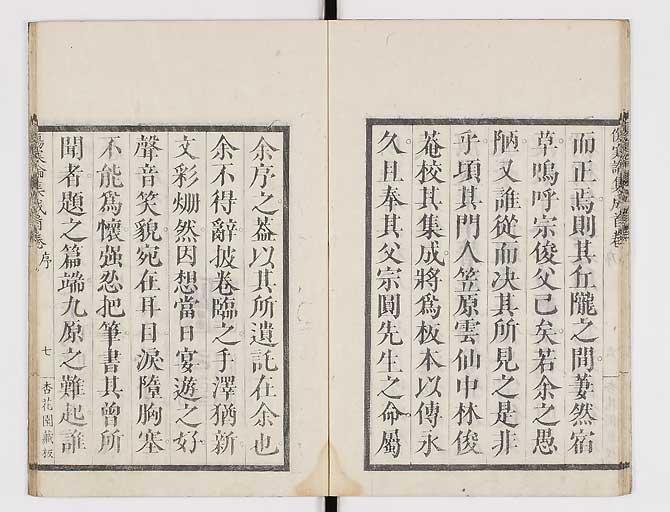 傷寒論集成首卷
而正焉則其丘隴之間萋然宿
草嗚呼宗俊父已矣若余之愚
陋又誰從而決其所見之是非
乎頃其門人笠原雲仙中林俊
菴校其集成將爲板本以傳永
久且奉其父宗圓先生之命屬
余序之葢以其所遺託在余也
余不得辭披卷臨之手澤猶新
文彩煥然因想當日宴遊之好
聲音笑貌宛在耳目淚隨胸塞
不能爲懷强忍把筆書其曾所
聞者題之篇端九原之難起誰
傷寒論集成首卷 序 七 杏花園藏板